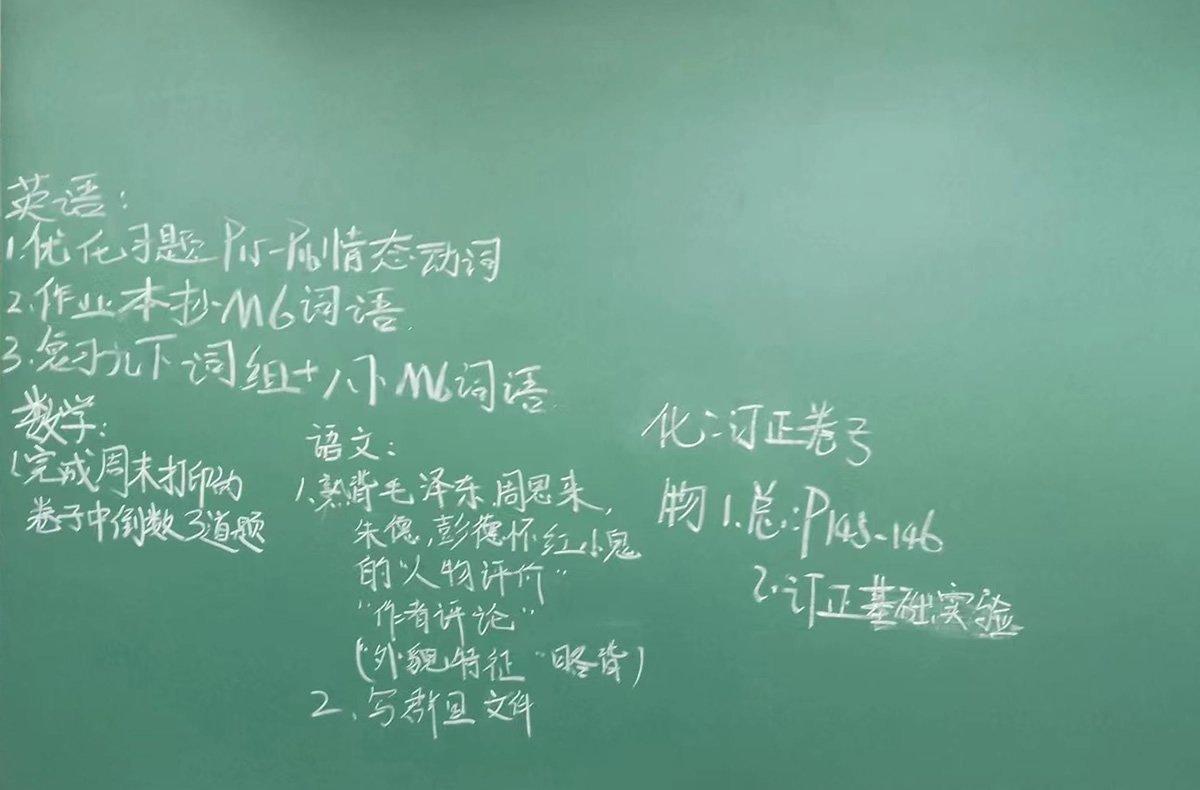 英语:
1.优化习题 P15-P16情态动词
2.作业本抄M6词语.
3.复习九下词组+八下M6词语.
数学:
1.完成周末打印的
卷子中倒数3道题
语文:
1.熟背毛泽东、周恩来,
朱德,彭德怀红小鬼
的"人物评价"
"作者评论"
("外貌特征"略背)
2、写群里文件
化:订正卷子
物1.总:P145-146
2.订正基础实验